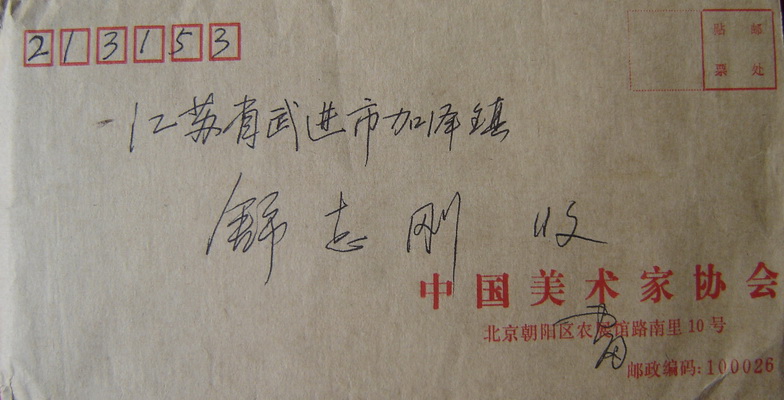 213153
贴邮
票处
江苏省武进市加泽镇
舒志刚 收
中国美术家协会
北京朝阳区农展馆路南里10号
邮政编码:100026